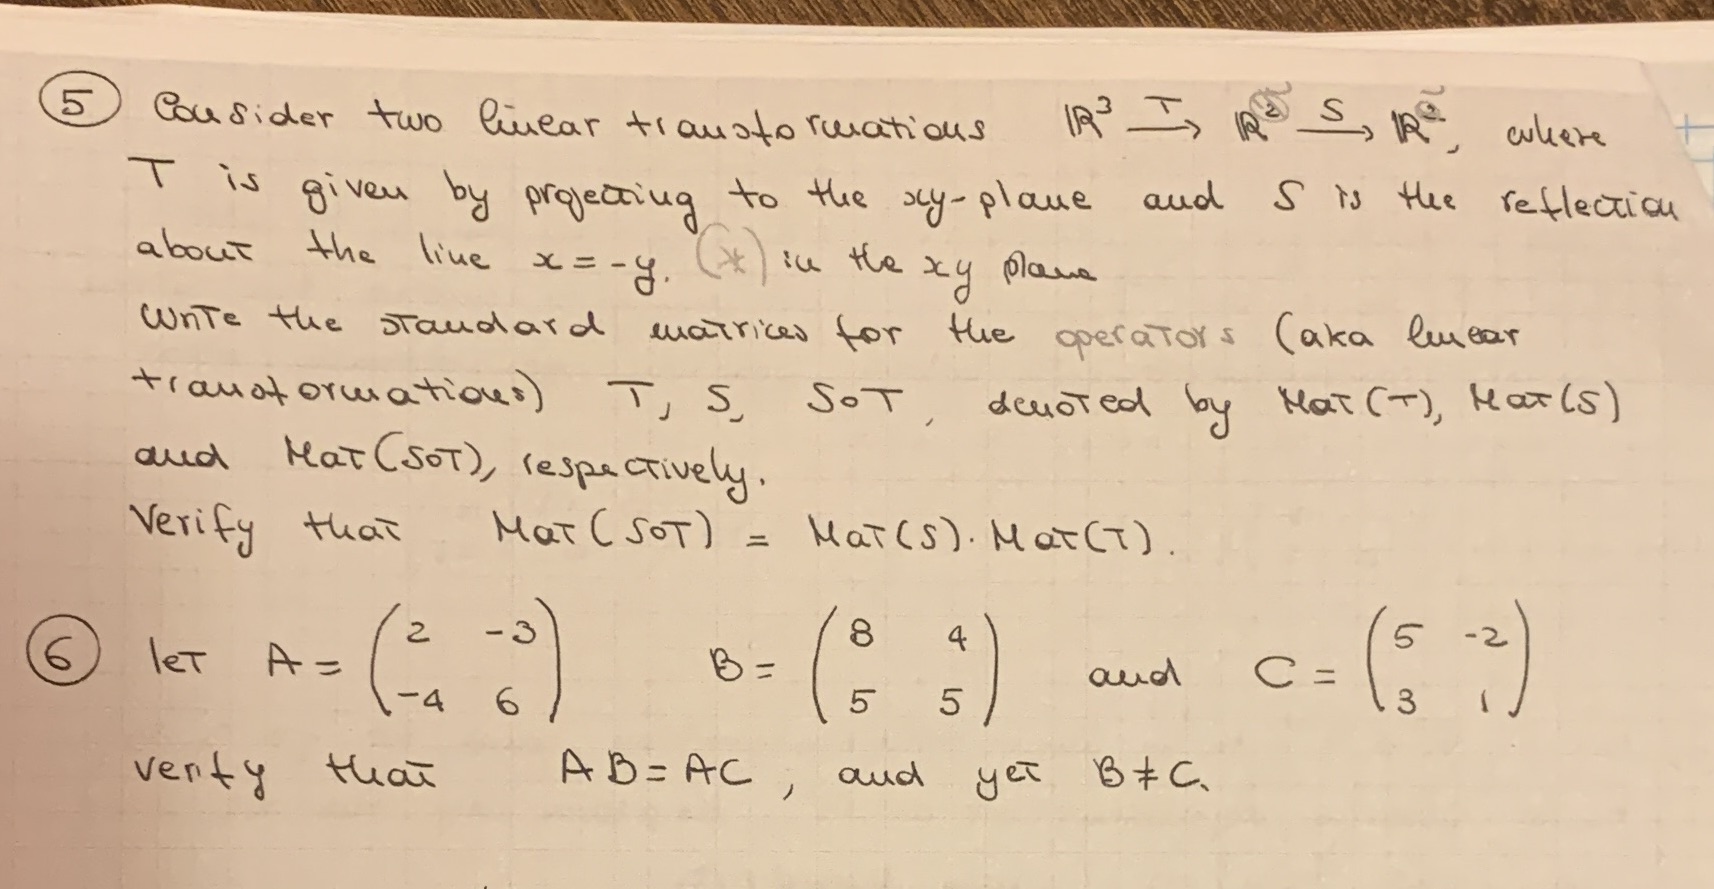 5 Consider two linear transformations ℝ³ —T→ ℝ² —S→ ℝ², where
T is given by projecting to the xy-plane and S is the reflection
about the line x = -y. (*) in the xy plane
Write the standard matrices for the operators (aka linear
transformations) T, S, S∘T, denoted by Mat(T), Mat(S)
and Mat(S∘T), respectively.
Verify that Mat(S∘T) = Mat(S)·Mat(T).
6 let A = (2 -3; -4 6) B = (8 4; 5 5) and C = (5 -2; 3 1)
verify that AB = AC, and yet B ≠ C.